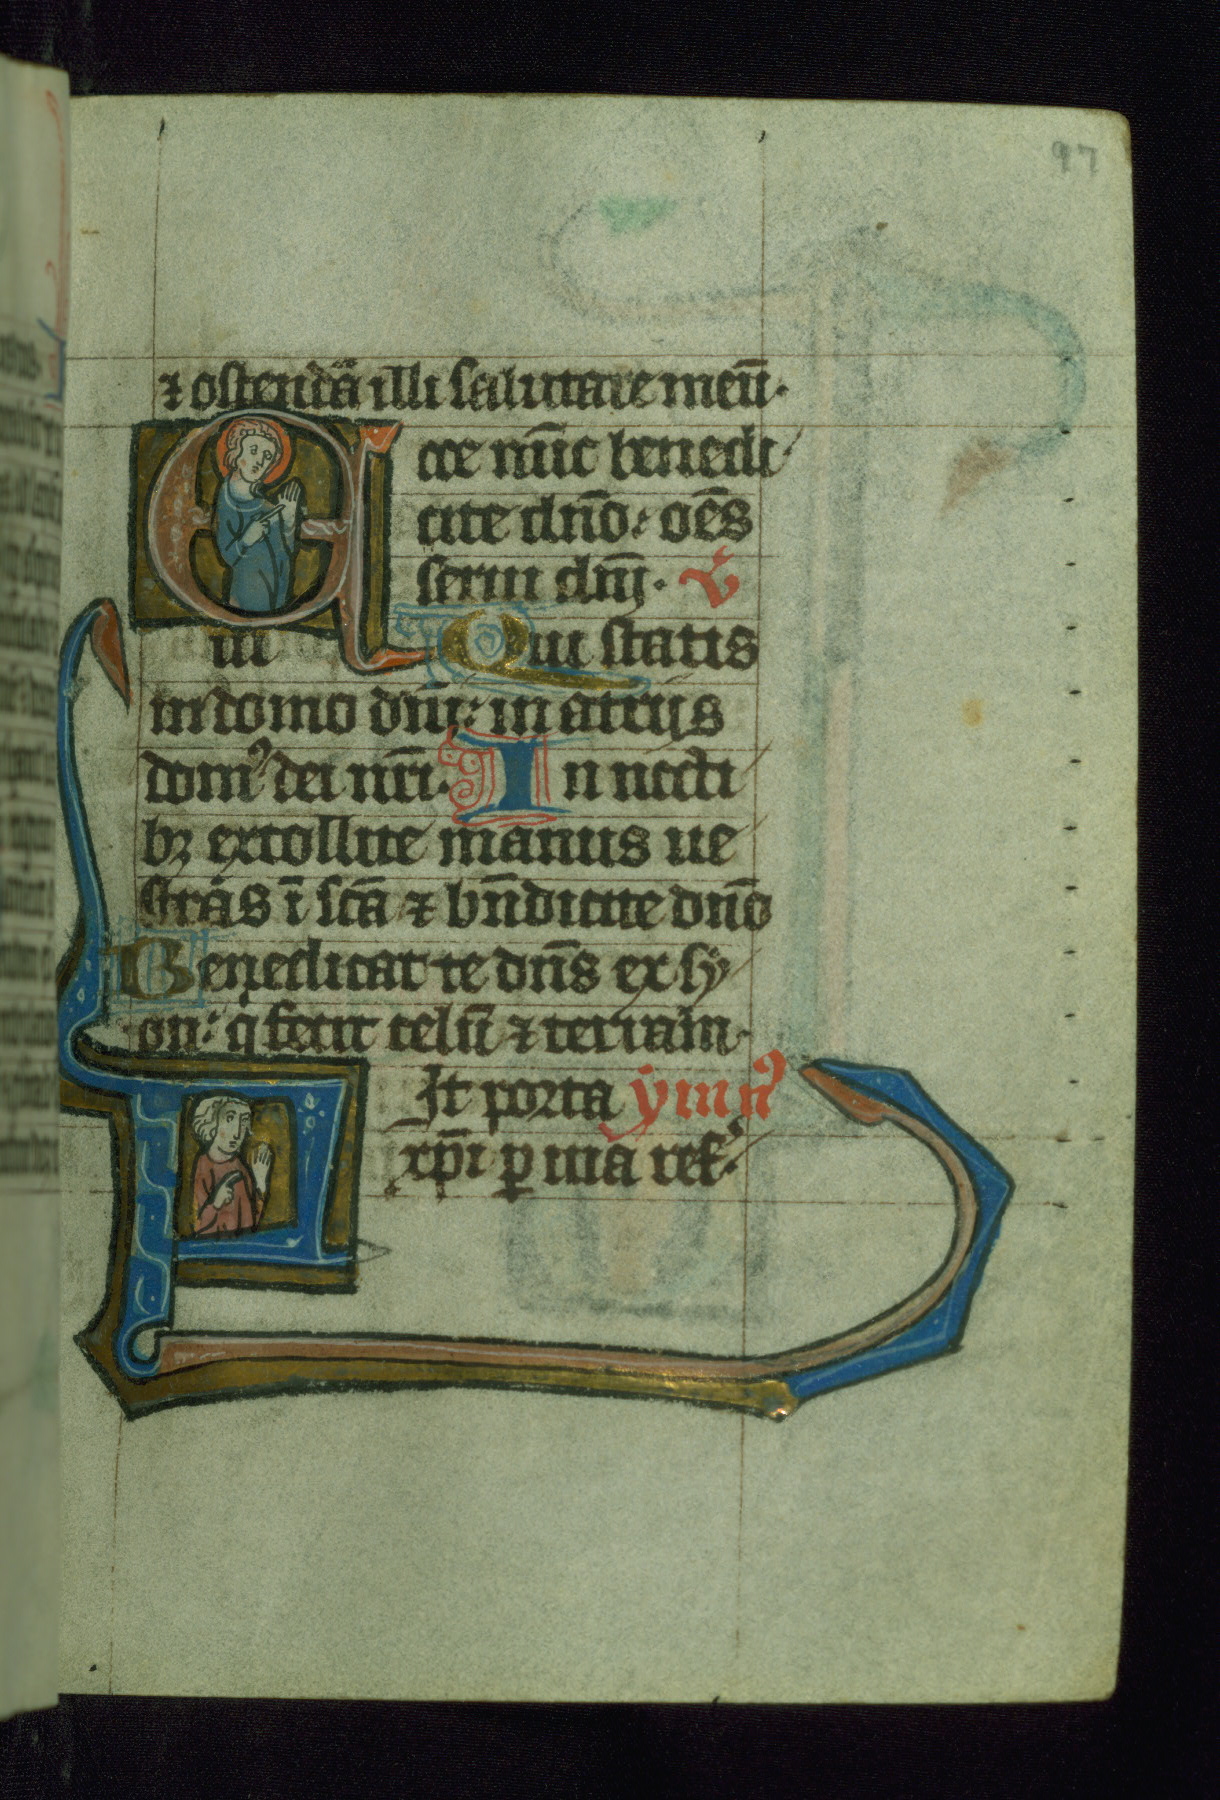 97
⁊ ostendā illi salutare meū·
Ecce nūc benedi
cite dn̄o: oēs
serui dn̄i· v̄
iii Qui statis
in domo dn̄i: in atrijs
domꝰ dei nr̄i· In nocti
bꝫ extollite manus ue
stras ī sc̄a ⁊ bn̄dicite dn̄o
Benedicat te dn̄s ex sy
on: q̇ fecit celū ⁊ terram·
Fit porta ymnꝰ
xp̄i ꝑuia ref